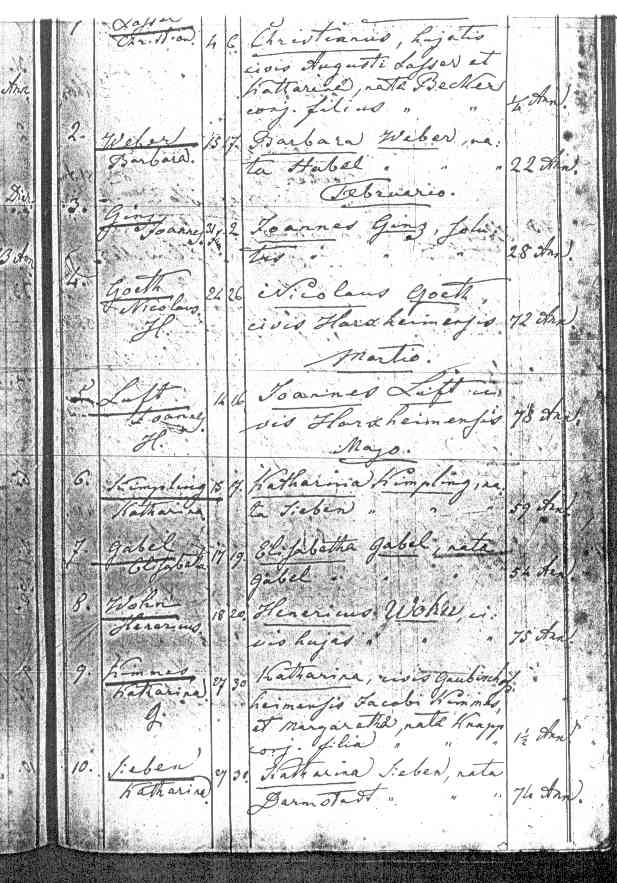 1 Lasser Christianus, hujatis
Christian. 4 6. civis Augusti Lasser et
Katharinä, natä Becker
conj. filius " " ¼ Ann.
2. Weber 15 17. Barbara Weber, na:
Barbara. ta Habel " " 22 Ann.
Februario.
3. Ginz 31 2 Joannes Ginz, Solu:
Joannes tus " " " 28 Ann.
4. Goeth 24 26 Nicolaus Goeth,
Nicolaus civis Harxheimensis 72 Ann.
H.
Martio.
5 Luft 14 16 Joannes Luft ci:
Joannes vis Harxheimensis 78 Ann.
H.
Mayo.
6. Kimpling 15 17. Katharina Kimpling, na:
Katharina ta Sieben " " " 59 Ann.
7. Gabel 17 19. Elisabetha Gabel, nata
Elisabeta Gabel " " " 54 Ann.
8. Wohn 18 20. Henericus Wohn, ci:
Henericus. vis hujas " " " 75 Ann.
9. Kimmes 27 30 Katharina, civis Gaubischofs:
Katharina heimensis Jacobi Kimmes,
G. et Margarethä, natä Knapp
conj. filia " " " 1½ Ann.
10. Sieben 27 30. Katharina Sieben, nata
Katharina Darmstadt " " " 74 Ann.